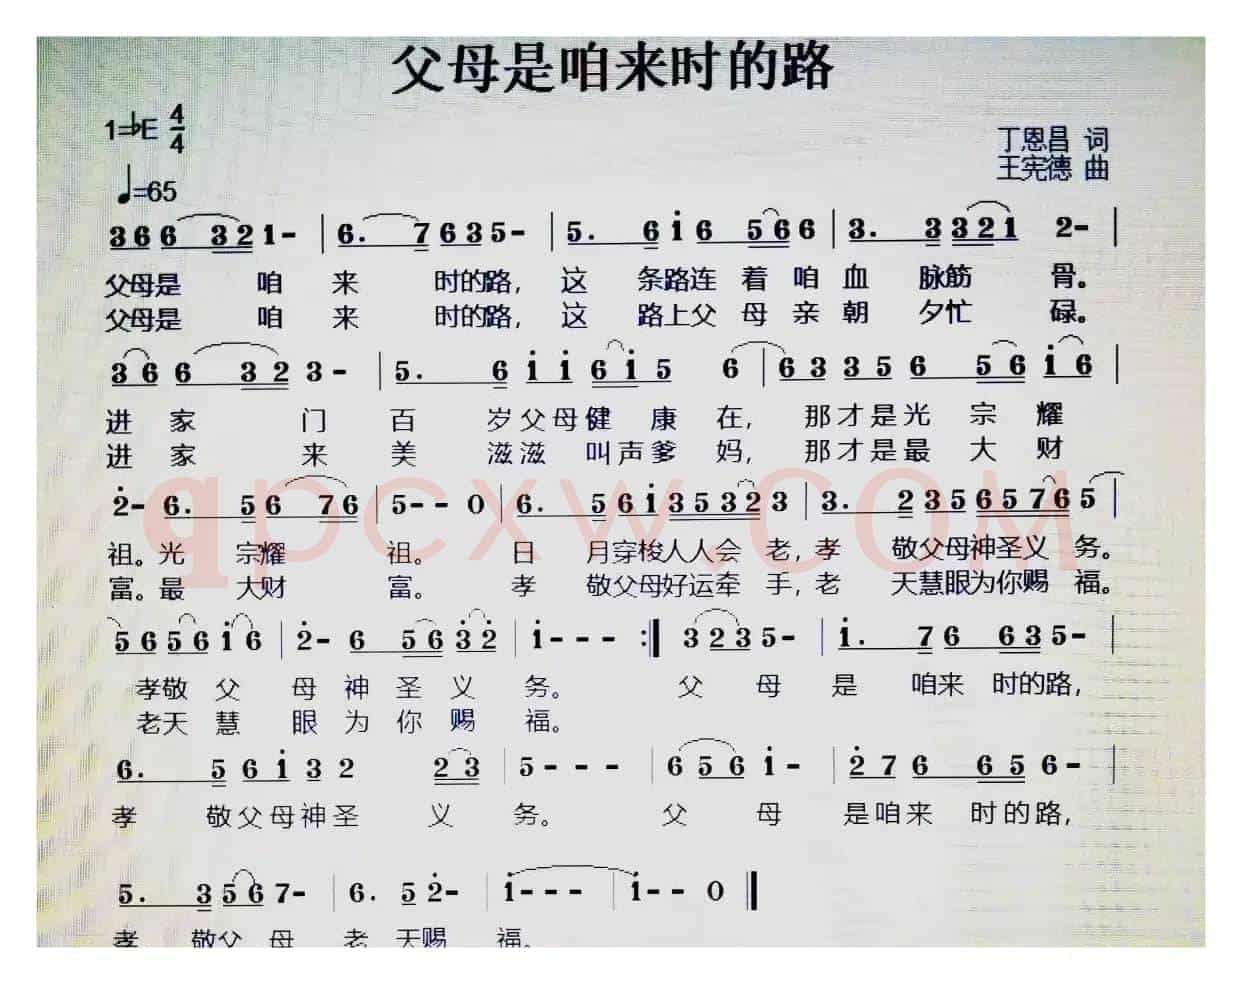 父母是咱来时的路
1=♭E 4/4
丁恩昌 词
王宪德 曲
♩=65
3 6 6 3 2 1 - | 6. 7 6 3 5 - | 5. 6 i 6 5 6 6 | 3. 3 3 2 1 2 - |
父母是 咱 来 时的路, 这 条路连 着 咱 血 脉筋 骨。
父母是 咱 来 时的路, 这 路上父 母 亲 朝 夕忙 碌。
3 6 6 3 2 3 - | 5. 6 i i 6 i 5 6 | 6 3 3 5 6 5 6 i 6 |
进 家 门 百 岁父母健 康 在, 那才是光 宗 耀
进 家 来 美 滋滋 叫声爹 妈, 那才是最 大 财
2 - 6. 5 6 7 6 | 5 - - 0 | 6. 5 6 i 3 5 3 2 3 | 3. 2 3 5 6 5 7 6 5 |
祖。光 宗耀 祖。 日 月穿梭人人会 老,孝 敬父母神圣义 务。
富。最 大财 富。 孝 敬父母好运牵 手,老 天慧眼为你赐 福。
qpcxw.COM
5 6 5 6 i 6 | 2 - 6 5 6 3 2 | i - - - :| 3 2 3 5 - | i. 7 6 6 3 5 - |
孝敬 父 母 神 圣 义 务。 父 母 是 咱来 时的路,
老天 慧 眼 为 你 赐 福。
6. 5 6 i 3 2 2 3 | 5 - - - | 6 5 6 i - | 2 7 6 6 5 6 - |
孝 敬父母神圣 义 务。 父 母 是咱来 时的路,
5. 3 5 6 7 - | 6. 5 2 - | i - - - | i - - 0 ‖
孝 敬父 母 老 天赐 福。